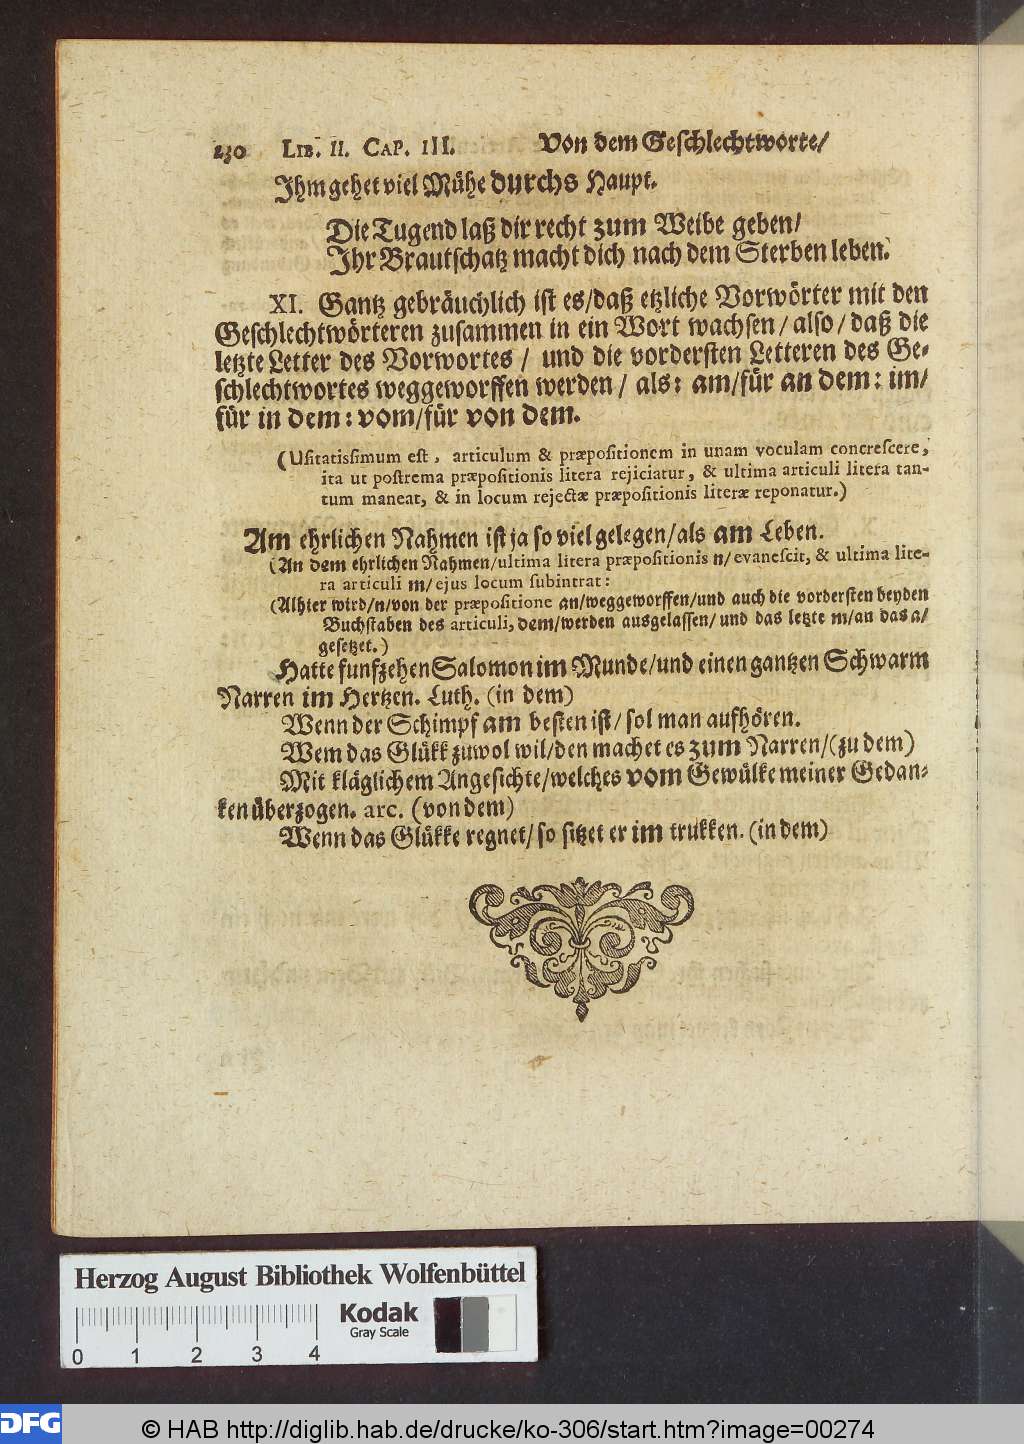 230 LIB. II. CAP. III. Von dem Geschlechtworte/
Ihm gehet viel Mühe durchs Haupt.
Die Tugend laß dir recht zum Weibe geben/
Ihr Brautschatz macht dich nach dem Sterben leben.
XI. Gantz gebräuchlich ist es/daß etzliche Vorwörter mit den
Geschlechtwörteren zusammen in ein Wort wachsen/also/daß die
letzte Letter des Vorwortes/ und die vordersten Letteren des Ge-
schlechtwortes weggeworffen werden/ als: am/für an dem: im/
für in dem: vom/für von dem.
(Usitatissimum est, articulum & præpositionem in unam voculam concrescere,
ita ut postrema præpositionis litera rejiciatur, & ultima articuli litera tan-
tum maneat, & in locum rejectæ præpositionis literæ reponatur.)
Am ehrlichen Nahmen ist ja so viel gelegen/als am Leben.
(An dem ehrlichen Nahmen/ultima litera præpositionis n/evanescit, & ultima lite-
ra articuli m/ejus locum subintrat:
(Alhier wird/n/von der præpositione an/weggeworffen/und auch die vordersten beyden
Buchstaben des articuli, dem/werden ausgelassen/ und das letzte m/an das a/
gesetzet.)
Hatte funfzehen Salomon im Munde/und einen gantzen Schwarm
Narren im Hertzen. Luth. (in dem)
Wenn der Schimpf am besten ist/ sol man aufhören.
Wem das Glükk zuwol wil/den machet es zum Narren/(zu dem)
Mit kläglichem Angesichte/welches vom Gewülke meiner Gedan-
ken überzogen. arc. (von dem)
Wenn das Glükke regnet/so sitzet er im trukken. (in dem)
Herzog August Bibliothek Wolfenbüttel
Kodak
Gray Scale
0 1 2 3 4
DFG © HAB http://diglib.hab.de/drucke/ko-306/start.htm?image=00274